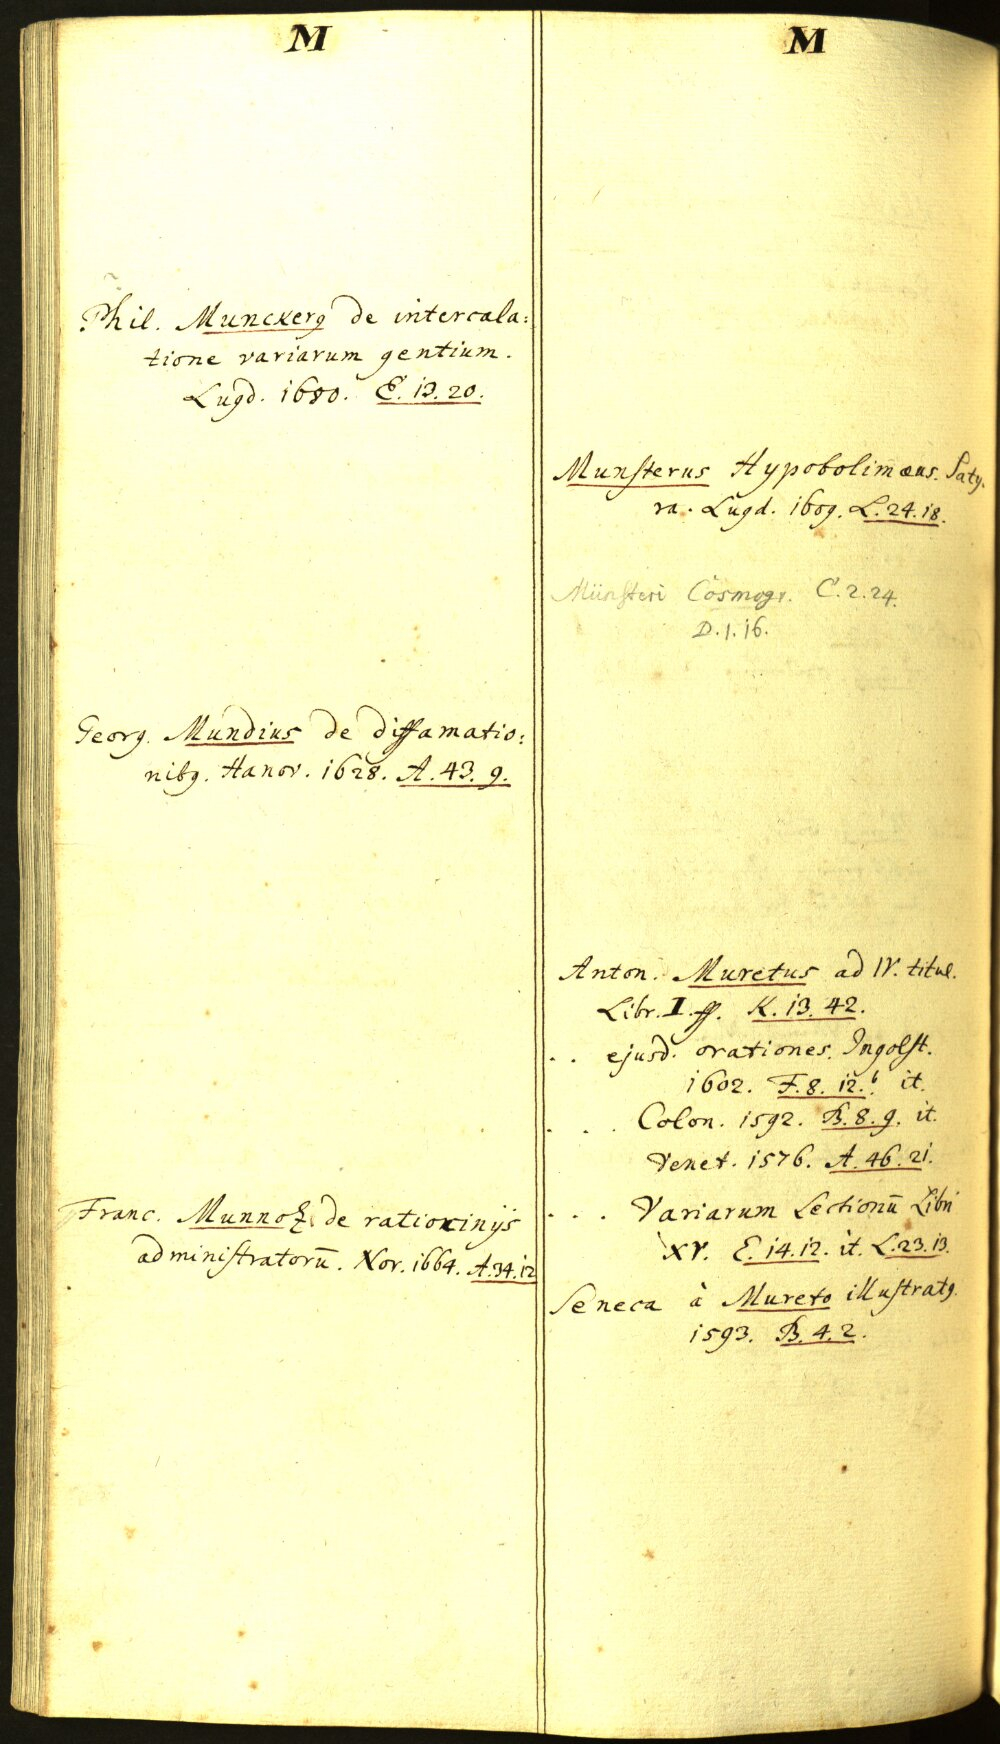 M
Phil. Munckerꝰ de intercala:
tione variarum gentium.
Lugd. 1680. E. 13. 20.
Georg. Mundius de diffamatio:
nibꝰ. Hanov. 1628. A. 43. 9.
Franc. Munnoz de ratiocinijs
administratorū. Nor. 1664. A. 34. 12
M
Munsterus Hypobolimæus. Saty.
ra. Lugd. 1609. L. 24. 18.
Münsteri Cosmogr. C. 2. 24.
D. 1. 16.
Anton. Muretus ad IV. titul.
Libr. I. ff. K. 13. 42.
. . ejusd. orationes. Ingolst.
1602. F. 8. 12.b it.
. . . Colon. 1592. B. 8. 9. it.
Venet. 1576. A. 46. 21.
. . . Variarum Lectionū Libri
XV. E. 14. 12. it. L. 23. 13.
Seneca à Mureto illustratꝰ.
1593. B. 4. 2.